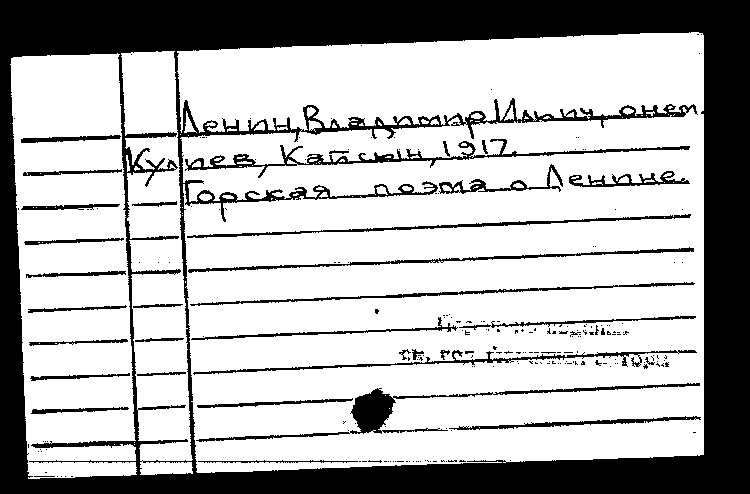 Ленин, Владимир Ильич, о нем.
Кулиев, Кайсын, 1917.
Горская поэма о Ленине.
см. под